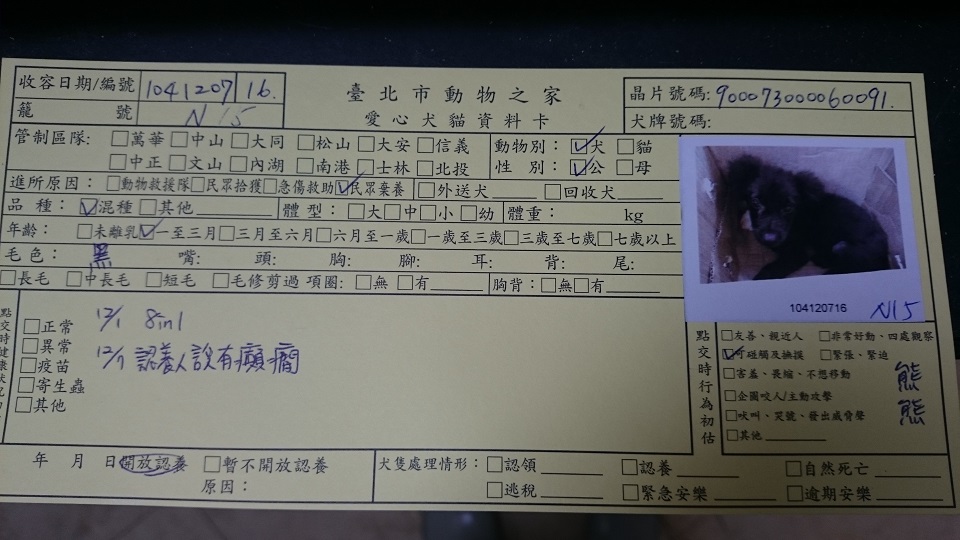 收容日期/編號 1041207 16.
臺北市動物之家
晶片號碼: 900073000060091.
籠 號 N15
愛心犬貓資料卡
犬牌號碼:
管制區隊: □萬華 □中山 □大同 □松山 □大安 □信義
動物別: ☑犬 □貓
□中正 □文山 □內湖 □南港 □士林 □北投
性 別: ☑公 □母
進所原因: □動物救援隊 □民眾拾獲 □急傷救助 ☑民眾棄養 □外送犬____ □回收犬____
品 種: ☑混種 □其他____ 體 型: □大 □中 □小 □幼 體重: kg
年齡: □未離乳 ☑一至三月 □三月至六月 □六月至一歲 □一歲至三歲 □三歲至七歲 □七歲以上
毛色: 黑 嘴: 頭: 胸: 腳: 耳: 背: 尾:
□長毛 □中長毛 □短毛 □毛修剪過 項圈: □無 □有____ 胸背: □無 □有____
104120716 N15
□正常
□異常
□疫苗
□寄生蟲
□其他
12/1 8in1
12/1 認養人說有癲癇
點交時行為初估
□友善、親近人 □非常好動、四處觀察
☑可碰觸及抽摸 □緊張、緊迫
□害羞、畏縮、不想移動
□企圖咬人/主動攻擊
□吠叫、哭號、發出威脅聲
□其他____
熊熊
年 月 日 開放認養 □暫不開放認養
原因:
犬隻處理情形: □認領____ □認養____ □自然死亡____
□逃稅____ □緊急安樂____ □逾期安樂____